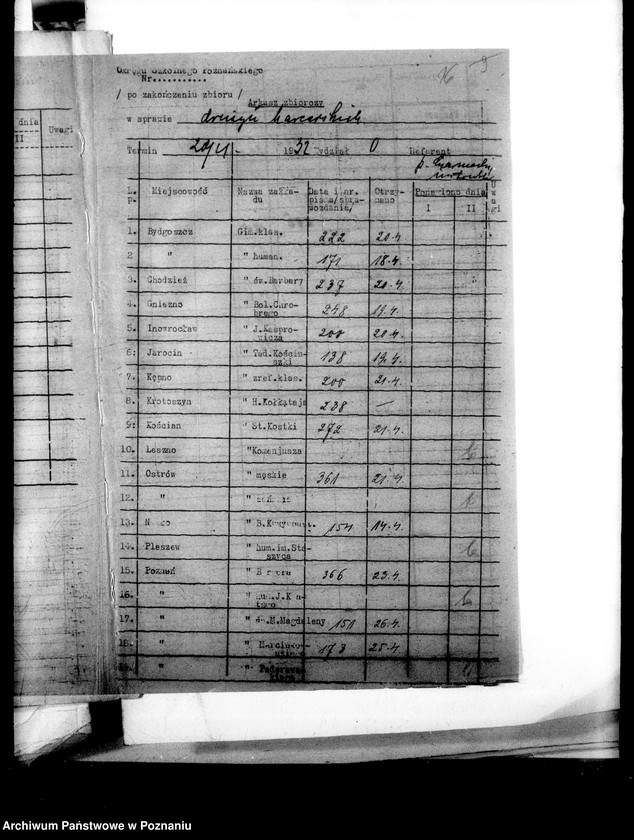 dnia
II
Uwagi
16
9
Okręgu Szkolnego Poznańskiego
Nr...........
/ po zakończeniu zbioru /
Arkusz zbiorczy
w sprawie drużyn harcerskich
Termin 1932 Wydział O Referent
L. p. Miejscowość Nazwa zakładu Data i nr. pisma/sprawozdania/ Otrzymano Ponaglono dnia I II Uwagi
1. Bydgoszcz Gim.klas. 222 20.4
2 " " human. 171 18.4.
3. Chodzież " św.Barbary 237 20.4.
4. Gniezno " Bol.Chrobrego 248 19.4.
5. Inowrocław " J.Kasprowicza 200 20.4.
6: Jarocin " Tad.Kościuszki 138 19.4.
7. Kępno " zref.klas. 200 21.4.
8. Krotoszyn " H.Kołłątaja 238 —
9: Kościan " St.Kostki 272 21.4.
10. Leszno "Komenjusza
11. Ostrów " męskie 361 21.4.
12. " "
13. " B. 154 14.4.
14. Pleszew " hum.im.Staszyca
15. Poznań " 366 23.4.
16. " "
17. " " św.M.Magdaleny 151 26.4.
18. " " Marcinkowskiego 173 25.4.
" " Paderewskiego
Archiwum Państwowe w Poznaniu